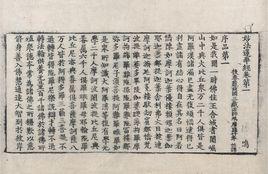 妙法蓮華經卷第一
後秦龜茲國三藏法師鳩摩羅什奉 詔譯
序品第一
如是我聞一時佛住王舍城耆闍崛
山中與大比丘眾萬二千人俱皆是
阿羅漢諸漏已盡無復煩惱逮得己
利盡諸有結心得自在其名曰阿若
憍陳如摩訶迦葉優樓頻螺迦葉伽
耶迦葉那提迦葉舍利弗大目揵連
摩訶迦旃延阿㝹樓馱劫賓那憍梵
波提離婆多畢陵伽婆蹉薄拘羅摩
訶拘絺羅難陀孫陀羅難陀富樓那
彌多羅尼子須菩提阿難羅睺羅如
是眾所知識大阿羅漢等復有學無
學二千人摩訶波闍波提比丘尼與
眷屬六千人俱羅睺羅母耶輸陀羅
比丘尼亦與眷屬俱菩薩摩訶薩八
萬人皆於阿耨多羅三藐三菩提不
退轉皆得陀羅尼樂說辯才轉不退
轉法輪供養無量百千諸佛於諸佛所
殖眾德本常為諸佛之所稱歎以慈
修身善入佛慧通達大智到於彼